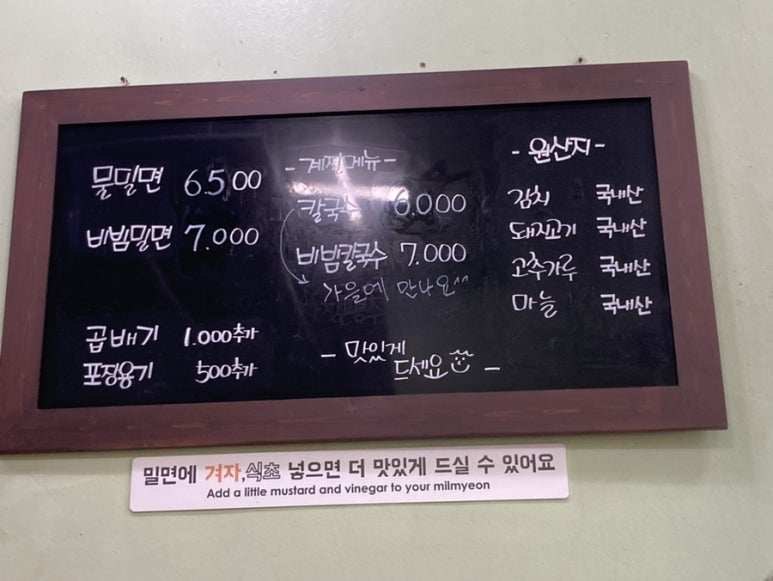 물밀면 6.500
비빔밀면 7.000
곱배기 1.000추가
포장용기 500추가
- 계절메뉴 -
칼국수 6.000
비빔칼국수 7.000
가을에 만나요^^
- 맛있게
드세요 -
- 원산지 -
김치 국내산
돼지고기 국내산
고추가루 국내산
마늘 국내산
밀면에 겨자,식초 넣으면 더 맛있게 드실 수 있어요
Add a little mustard and vinegar to your milmyeon